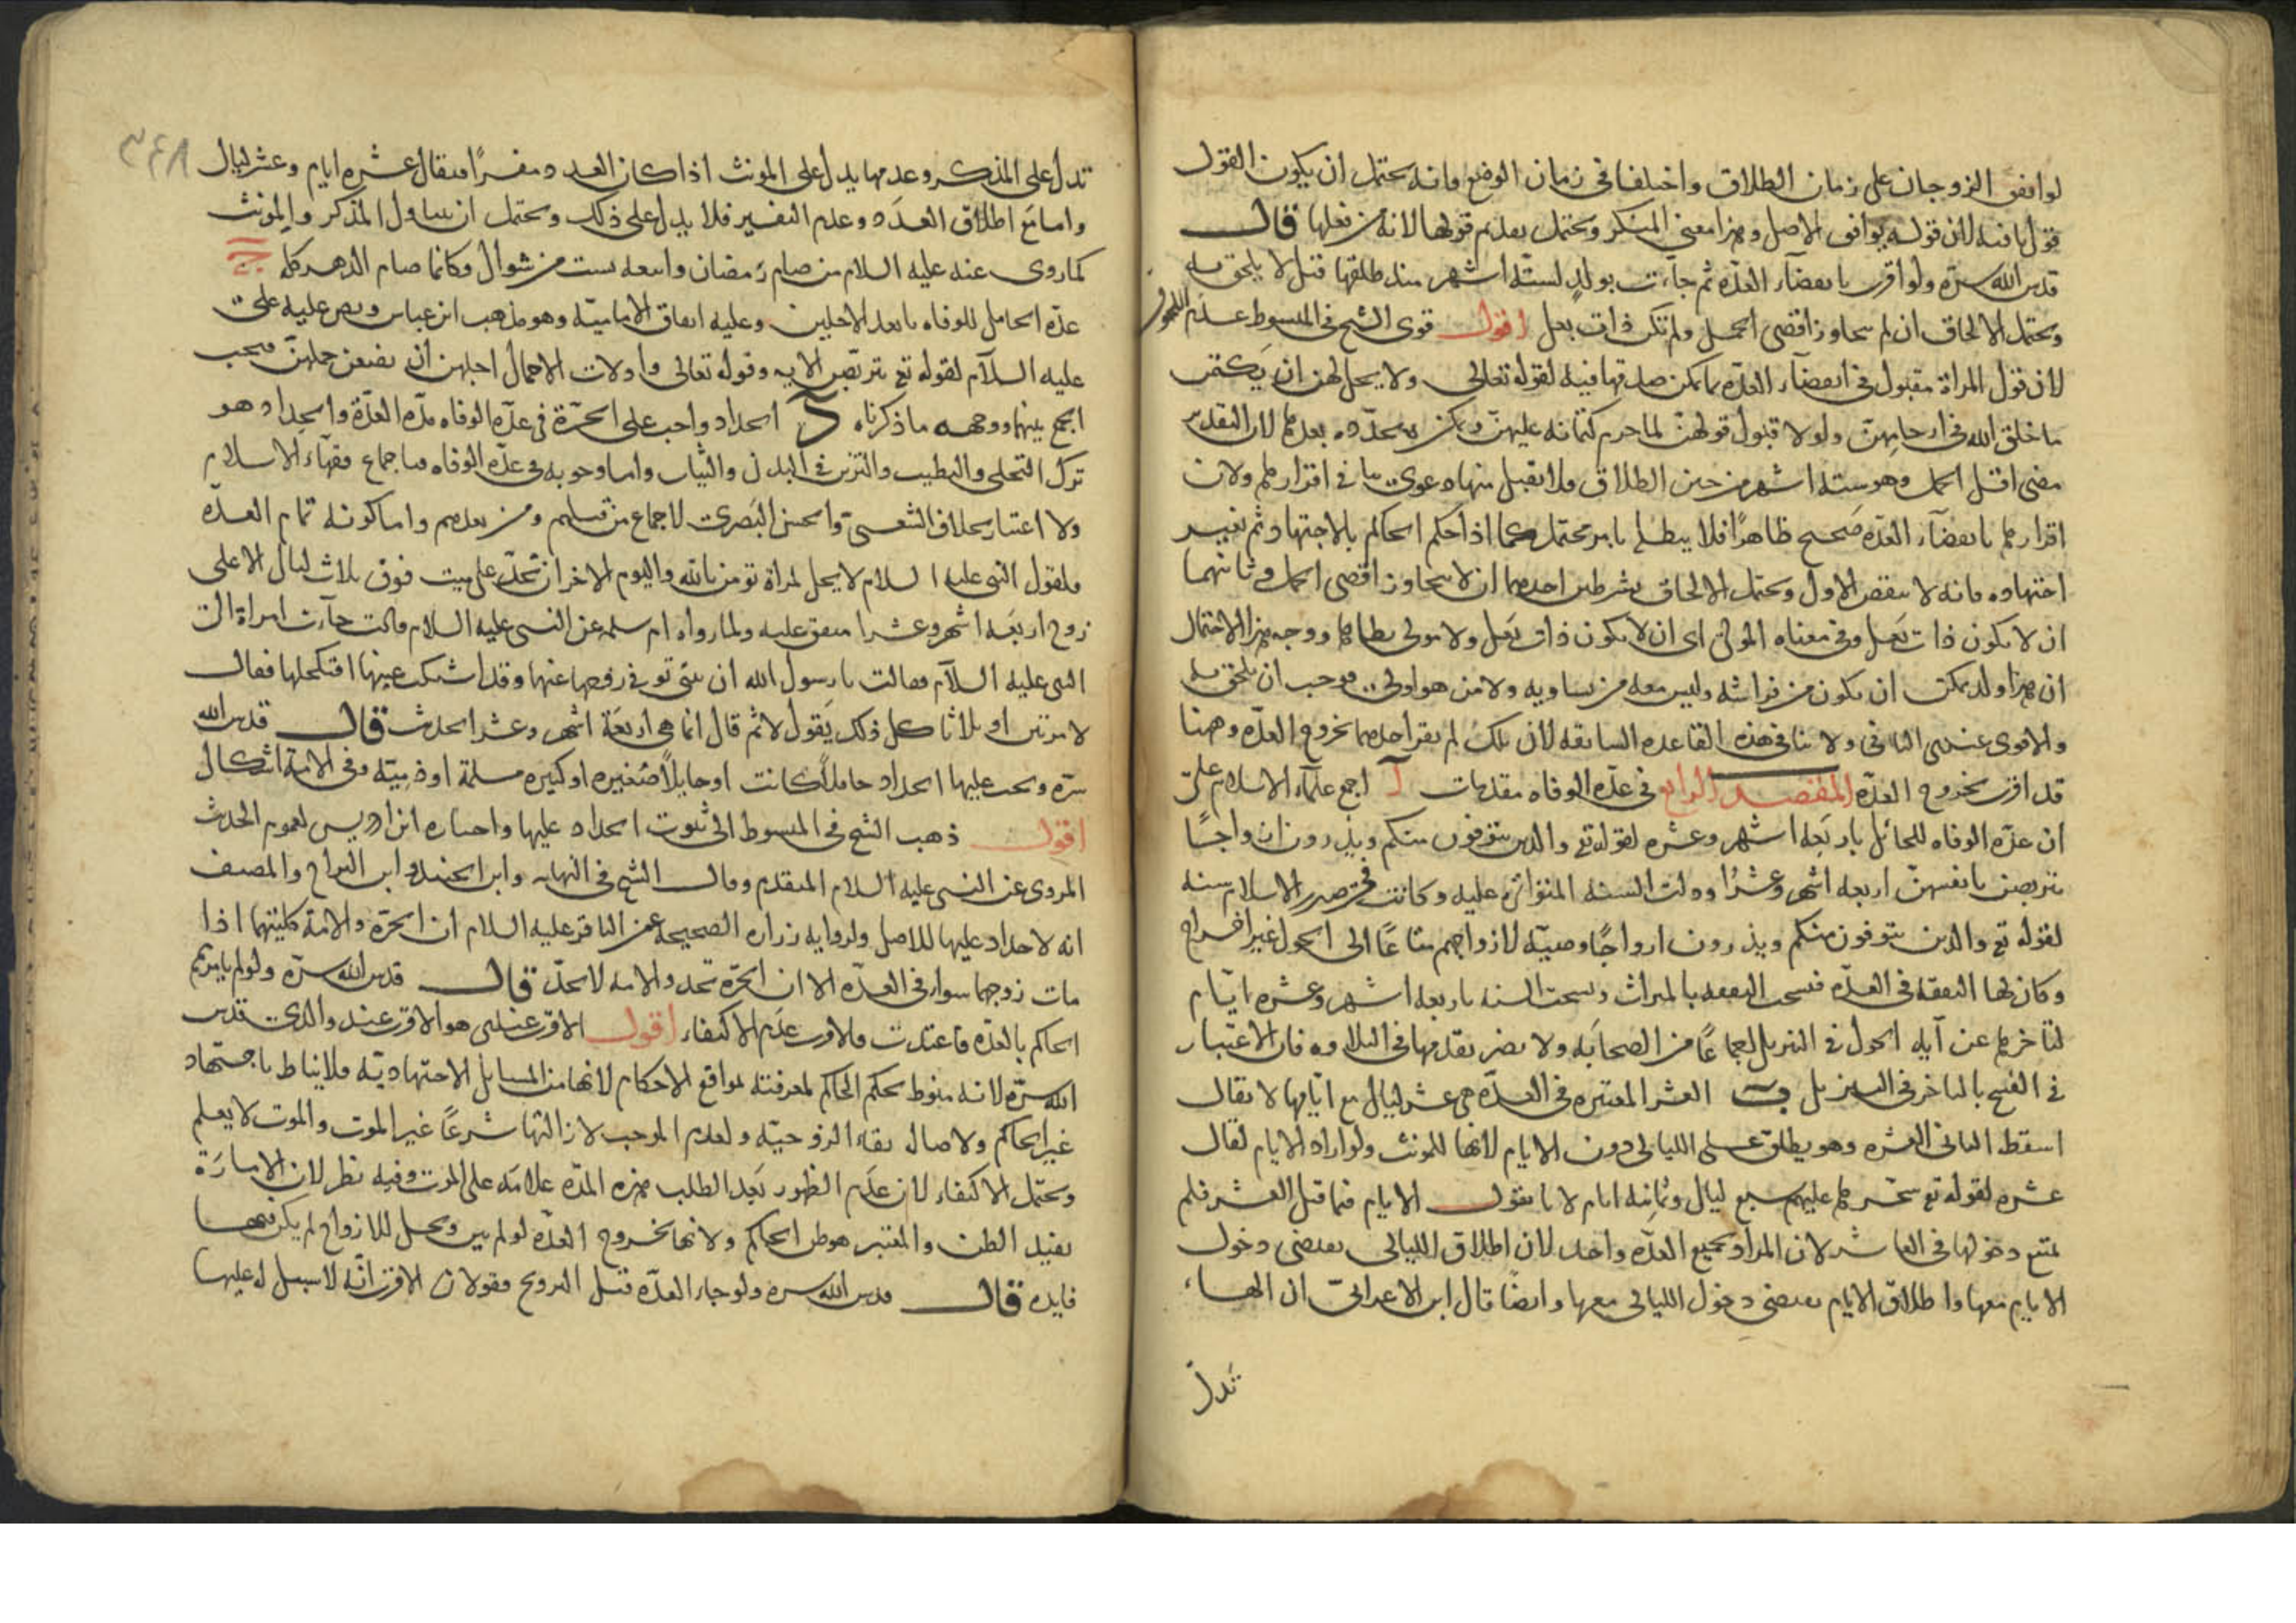 لو اتفق الزوجان على زمان الطلاق واختلفا في زمان الوضع فانه يحتمل ان يكون القول
قولها فيه لان قوله يوافق الاصل وهذا معنى المنكر ويحتمل تقديم قولها لانه من فعلها قال
قدس الله سره ولو اقرت بانقضاء العدة ثم جاءت بولد لستة اشهر منذ طلقها قيل لا يلحق به
ويحتمل الالحاق ان لم يتجاوز اقصى الحمل ولم تكن ذات بعل اقول قوى الشيخ في المبسوط عدم اللحوق
لان قول المراة مقبول في انقضاء العدة بما يمكن صدقها فيه لقوله تعالى ولا يحل لهن ان يكتمن
ما خلق الله في ارحامهن ولو لا قبول قولهن لما حرم كتمانه عليهن ويمكن تجدده بعدها لان التقدير
مضى اقل الحمل وهو ستة اشهر من حين الطلاق فلا تقبل منها دعوى ينافي اقرارها ولان
اقرارها بانقضاء العدة صحيح ظاهرا فلا يبطل بامر محتمل كما اذا حكم الحاكم بالاجتهاد ثم تغير
اجتهاده فانه لا ينقض الاول ويحتمل الالحاق بشرطين احدهما ان لا يتجاوز اقصى الحمل وثانيهما
ان لا يكون ذات بعل وفي معناه المولى اى ان لا يكون ذات بعل ولا مولى يطاها ووجه هذا الاحتمال
ان هذا ولد يمكن ان يكون من فراشه وليس معه من يساويه ولا من هو اولى فوجب ان يلحق به
والاقوى عندى الثانى ولا ينافي هذه القاعدة السابقة لان تلك لم يقر احدهما بخروج العدة وهنا
قد اقرت بخروج العدة المقصد الرابع في عدة الوفاه مقدمات آ اجمع علماء الاسلام على
ان عدة الوفاه للحائل باربعة اشهر وعشرة لقوله تع والذين يتوفون منكم ويذرون ازواجا
يتربصن بانفسهن اربعه اشهر وعشرا ودلت السنه المتواترة عليه وكانت في صدر الاسلام سنه
لقوله تع والذين يتوفون منكم ويذرون ازواجا وصية لازواجهم متاعا الى الحول غير اخراج
وكان لها النفقة في العدة فنسخت النفقه بالميراث ونسخت السنه باربعه اشهر وعشرة ايام
لتاخرها عن آية الحول في التنزيل اجماعا من الصحابة ولا يضر تقدمها في التلاوه فان الاعتبار
في النسخ بالتاخر في التنزيل ب العشر المعتبرة في العدة هى عشر ليال مع ايامها لا يقال
اسقط التاء في العشره وهو يطلق على الليالى دون الايام لانها للمونث ولو اراد الايام لقال
عشرة لقوله تع سخرها عليهم سبع ليال وثمانية ايام لا نا نقول الايام فما قبل العشر فلم
يمتنع دخولها في العاشر لان المراد بجميع العدة واحد لان اطلاق الليالى يقتضى دخول
الايام معها واطلاق الايام يقتضى دخول الليالى معها وايضا قال ابن الاعرابى ان الهاء
تدل
٣٤٨
تدل على المذكر وعدمها يدل على المونث اذا كان العدد مفسرا فيقال عشره ايام وعشر ليال
واما مع اطلاق العدد وعدم التفسير فلا يدل على ذلك ويحتمل ان يتناول المذكر والمونث
كما روى عنه عليه السلام من صام رمضان واتبعه بست من شوال وكانما صام الدهر كله ج
عدة الحامل للوفاه بابعد الاجلين وعليه اتفاق الامامية وهو مذهب ابن عباس ونص عليه على
عليه السلام لقوله تع يتربصن الايه وقوله تعالى واولات الاحمال اجلهن ان يضعن حملهن فيجب
الجمع بينهما ووجهه ما ذكرناه د الحداد واجب على الحرة في عدة الوفاه مدة العدة والحداد هو
ترك التحلى والتطيب والتزين في البدن والثياب واما وجوبه في عدة الوفاه فباجماع فقهاء الاسلام
ولا اعتبار بخلاف الشعبى والحسن البصرى لاجماع من قبلهم ومن بعدهم واما كونه تمام العدة
فلقول النبى عليه السلام لا يحل لمراة تومن بالله واليوم الاخر ان تحد على ميت فوق ثلاث ليال الا على
زوج اربعة اشهر وعشرا متفق عليه ولما رواه ام سلمه عن النبى عليه السلام قالت جاءت امراة الى
النبى عليه السلام فقالت يا رسول الله ان بنتى توفى زوجها عنها وقد اشتكت عينها افتكحلها فقال
لا مرتين او ثلاثا كل ذلك يقول لا ثم قال انما هى اربعة اشهر وعشر الحديث قال قدس الله
سره ويجب عليها الحداد حاملا كانت او حايلا صغيره او كبيره مسلمة او ذمية وفي الامة اشكال
اقول ذهب الشيخ في المبسوط الى ثبوت الحداد عليها واختاره ابن ادريس لعموم الحديث
المروى عن النبى عليه السلام المتقدم وقال الشيخ في النهايه وابن الجنيد وابن البراج والمصنف
انه لا حداد عليها للاصل ولروايه زراره الصحيحة عن الباقر عليه السلام ان الحرة والامة كلتيهما اذا
مات زوجهما سواء في العدة الا ان الحرة تحد والامه لا تحد قال قدس الله سره ولو لم يامرهم
الحاكم بالعدة فاعتدت فالاقرب عدم الاكتفاء اقول الاقرب عندى هو الاقرب عند والدى قدس
الله سره لانه منوط بحكم الحاكم لمعرفته لمواقع الاحكام لانها من المسايل الاجتهادية فلا يناط باجتهاد
غير الحاكم ولاصاله بقاء الزوجيه ولعدم الموجب لازالتها شرعا غير الموت والموت لا يعلم
ويحتمل الاكتفاء لان عدم الظهور بعد الطلب هذه المدة علامة على الموت وفيه نظر لان الامارة
يفيد الظن والمعتبر هو ظن الحاكم ولانها بخروج العدة لو لم يبن ويحل للازواج لم يكن فيها
فايدة قال قدس الله سره ولو جاء العدة قبل التزويج فقولان الاقرب انه لا سبيل له عليها